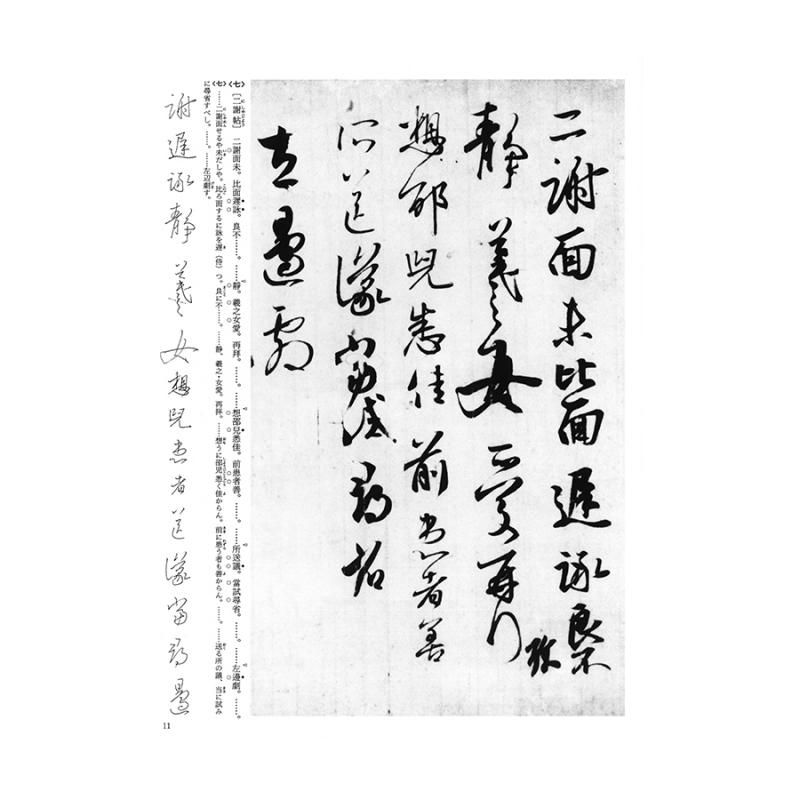 二謝面未比面遲詠良不
静羲之女愛再拜
想邵兒悉佳前患者善
所送議當試尋省
左邊劇
〈七〉〔二謝帖〕 二謝面未。比面遲詠。良不……。……静。羲之女愛。再拜。……。……想邵兒悉佳。前患者善。……。……所送議。當試尋省。……。……左邊劇。……。
〈七〉……二謝面せるや未だしや。比ろ面するに詠を遅(待)つ。良に不……。……静、羲之・女愛。再拝。……想うに邵児悉く佳からん。前に患う者も善からん。……。……送る所の議、当に試み
に尋省すべし。……。……左辺劇す。
謝遲詠静羲女想兒患者送議當尋邊
11